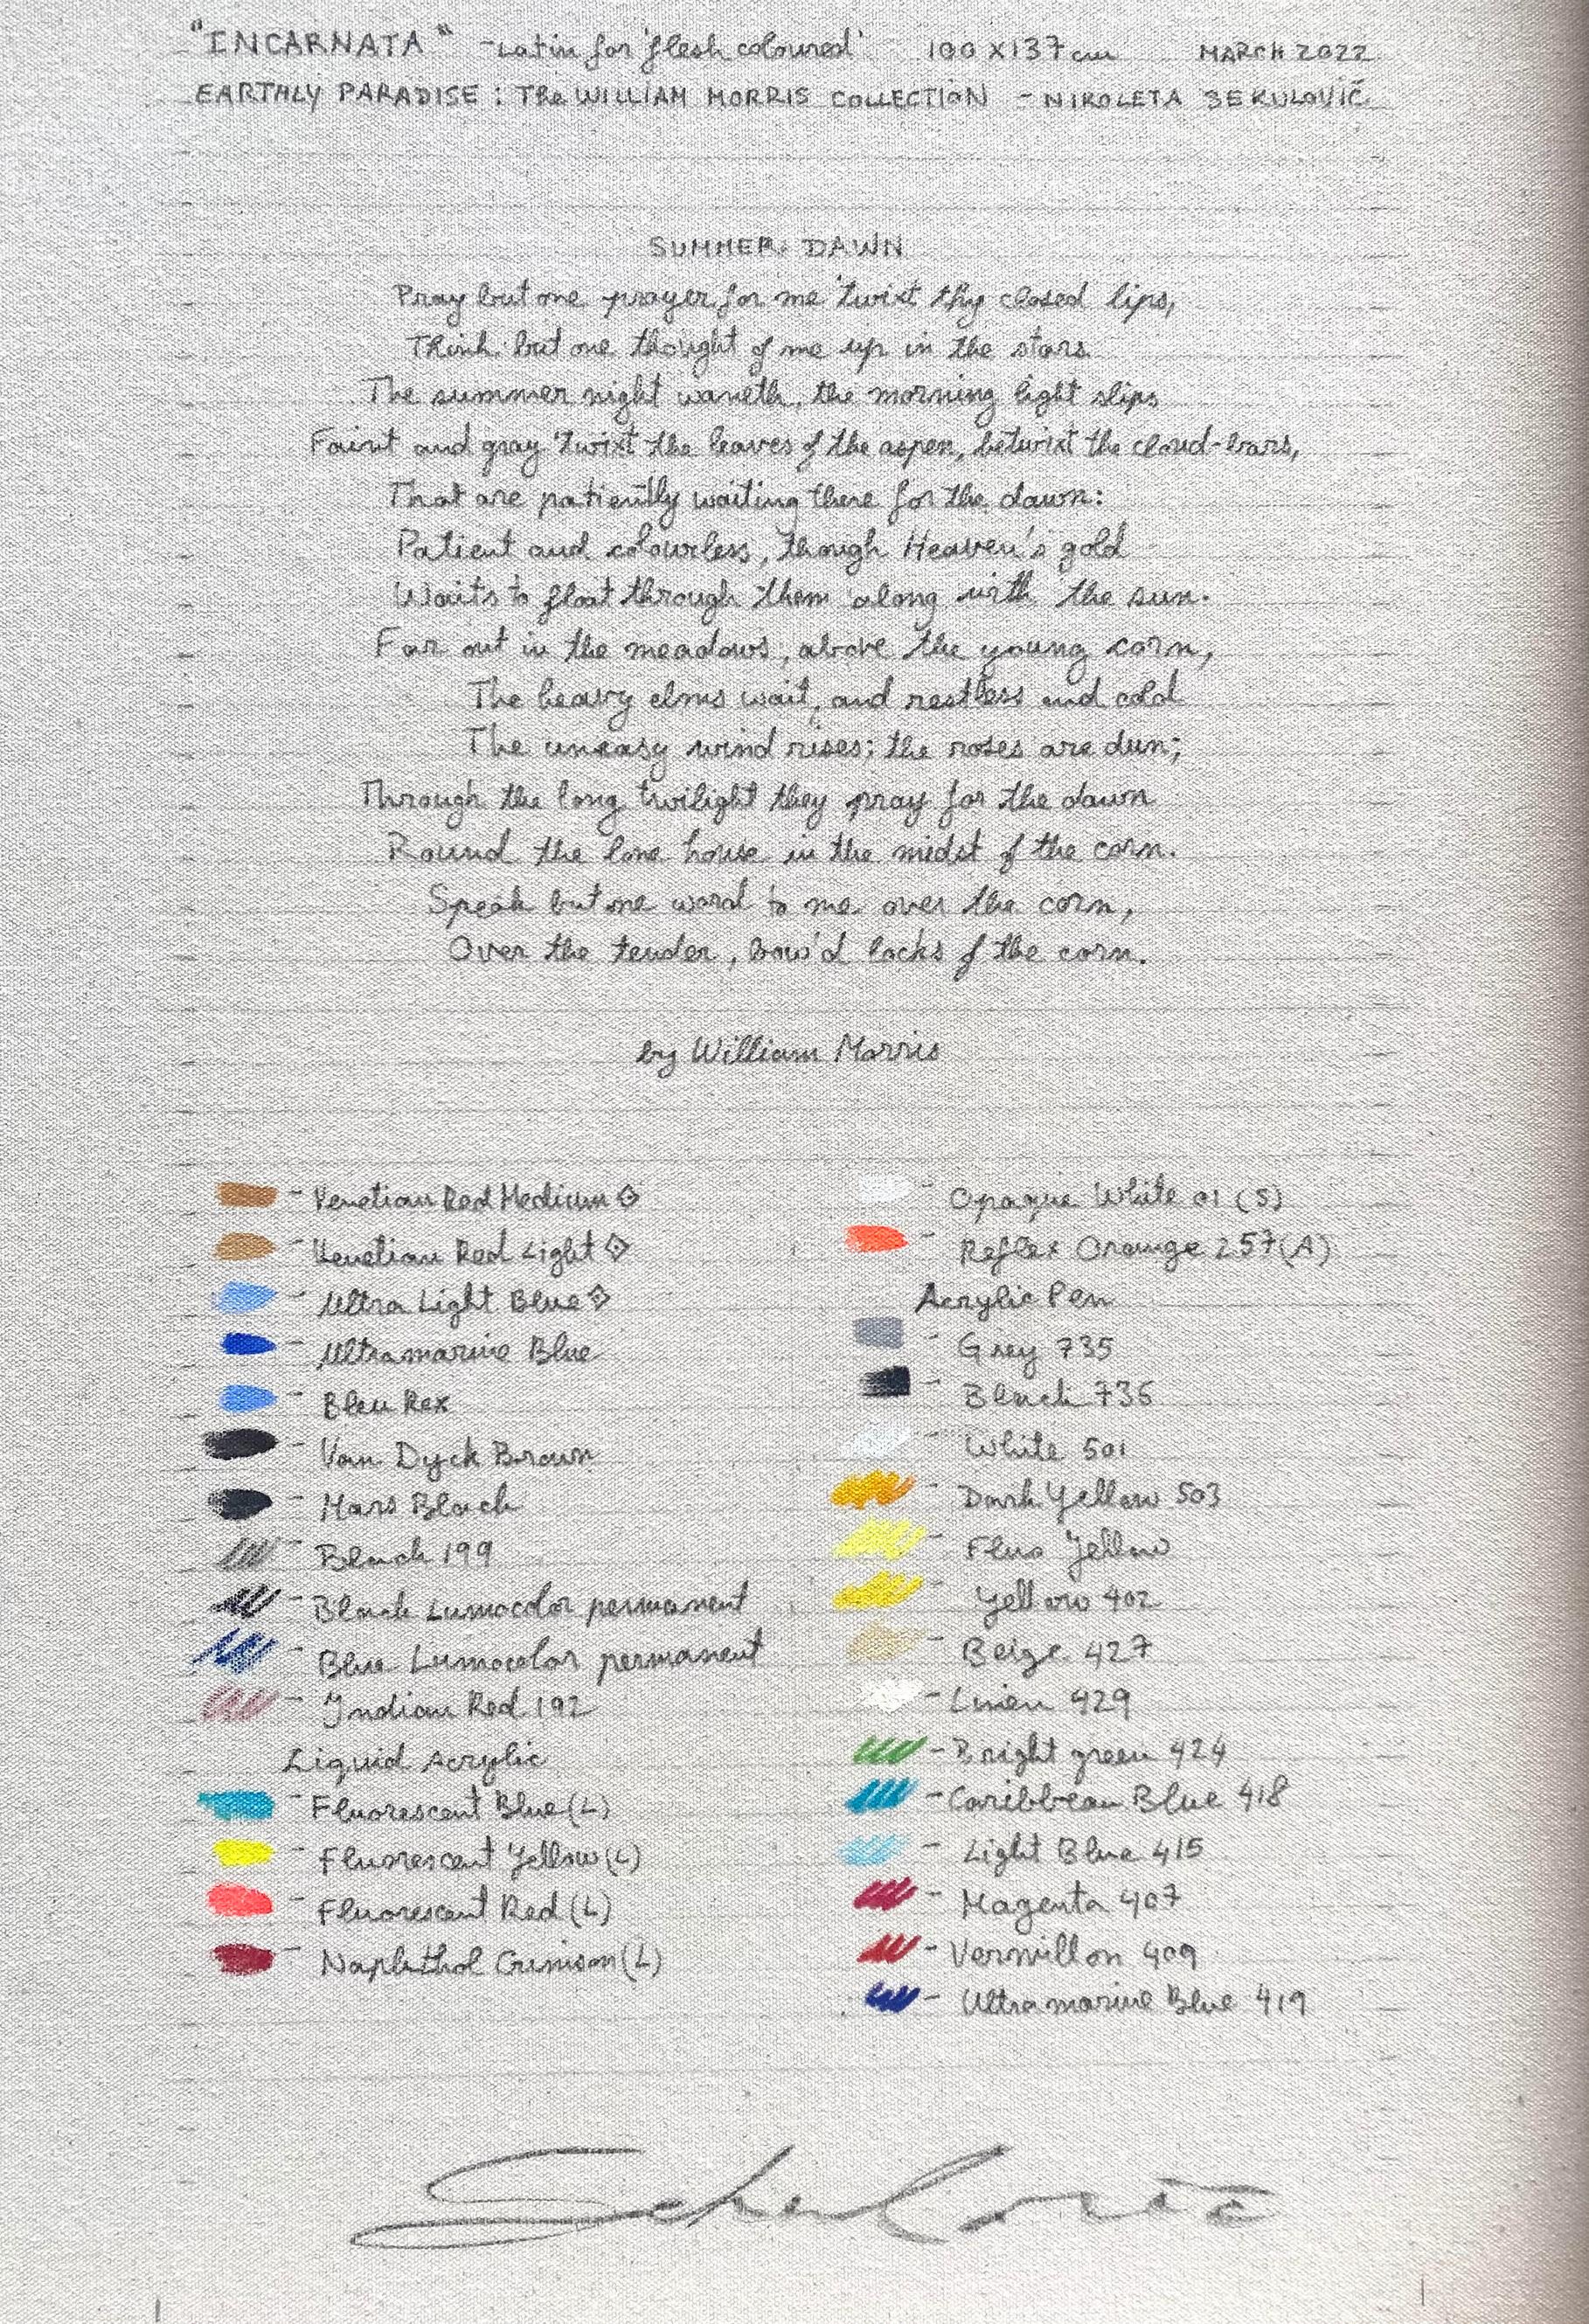 "INCARNATA" - Latin for 'flesh coloured' 100 X 137 cm MARCH 2022
EARTHLY PARADISE : The WILLIAM MORRIS COLLECTION - NIKOLETA SEKULOVIĆ
SUMMER DAWN
Pray but one prayer for me 'twixt thy closed lips,
Think but one thought of me up in the stars.
The summer night waneth, the morning light slips
Faint and gray 'twixt the leaves of the aspen, betwixt the cloud-bars,
That are patiently waiting there for the dawn:
Patient and colourless, though Heaven's gold
Waits to float through them along with the sun.
Far out in the meadows, above the young corn,
The heavy elms wait, and restless and cold
The uneasy wind rises; the roses are dun;
Through the long twilight they pray for the dawn
Round the lone house in the midst of the corn.
Speak but one word to me over the corn,
Over the tender, bow'd locks of the corn.
by William Morris
- Venetian Red Medium
- Venetian Red Light
- Ultra Light Blue
- Ultramarine Blue
- Bleu Rex
- Van Dyck Brown
- Mars Black
- Black 199
- Black Lumocolor permanent
- Blue Lumocolor permanent
- Indian Red 192
Liquid Acrylic
- Fluorescent Blue (L)
- Fluorescent Yellow (L)
- Fluorescent Red (L)
- Naphthol Crimson (L)
- Opaque White 01 (S)
- Reflex Orange 257 (A)
Acrylic Pen
- Grey 735
- Black 736
- White 501
- Dark Yellow 503
- Fluo Yellow
- Yellow 402
- Beige 427
- Linen 429
- Bright green 424
- Caribbean Blue 418
- Light Blue 415
- Magenta 407
- Vermillon 409
- Ultramarine Blue 419
Sekulović